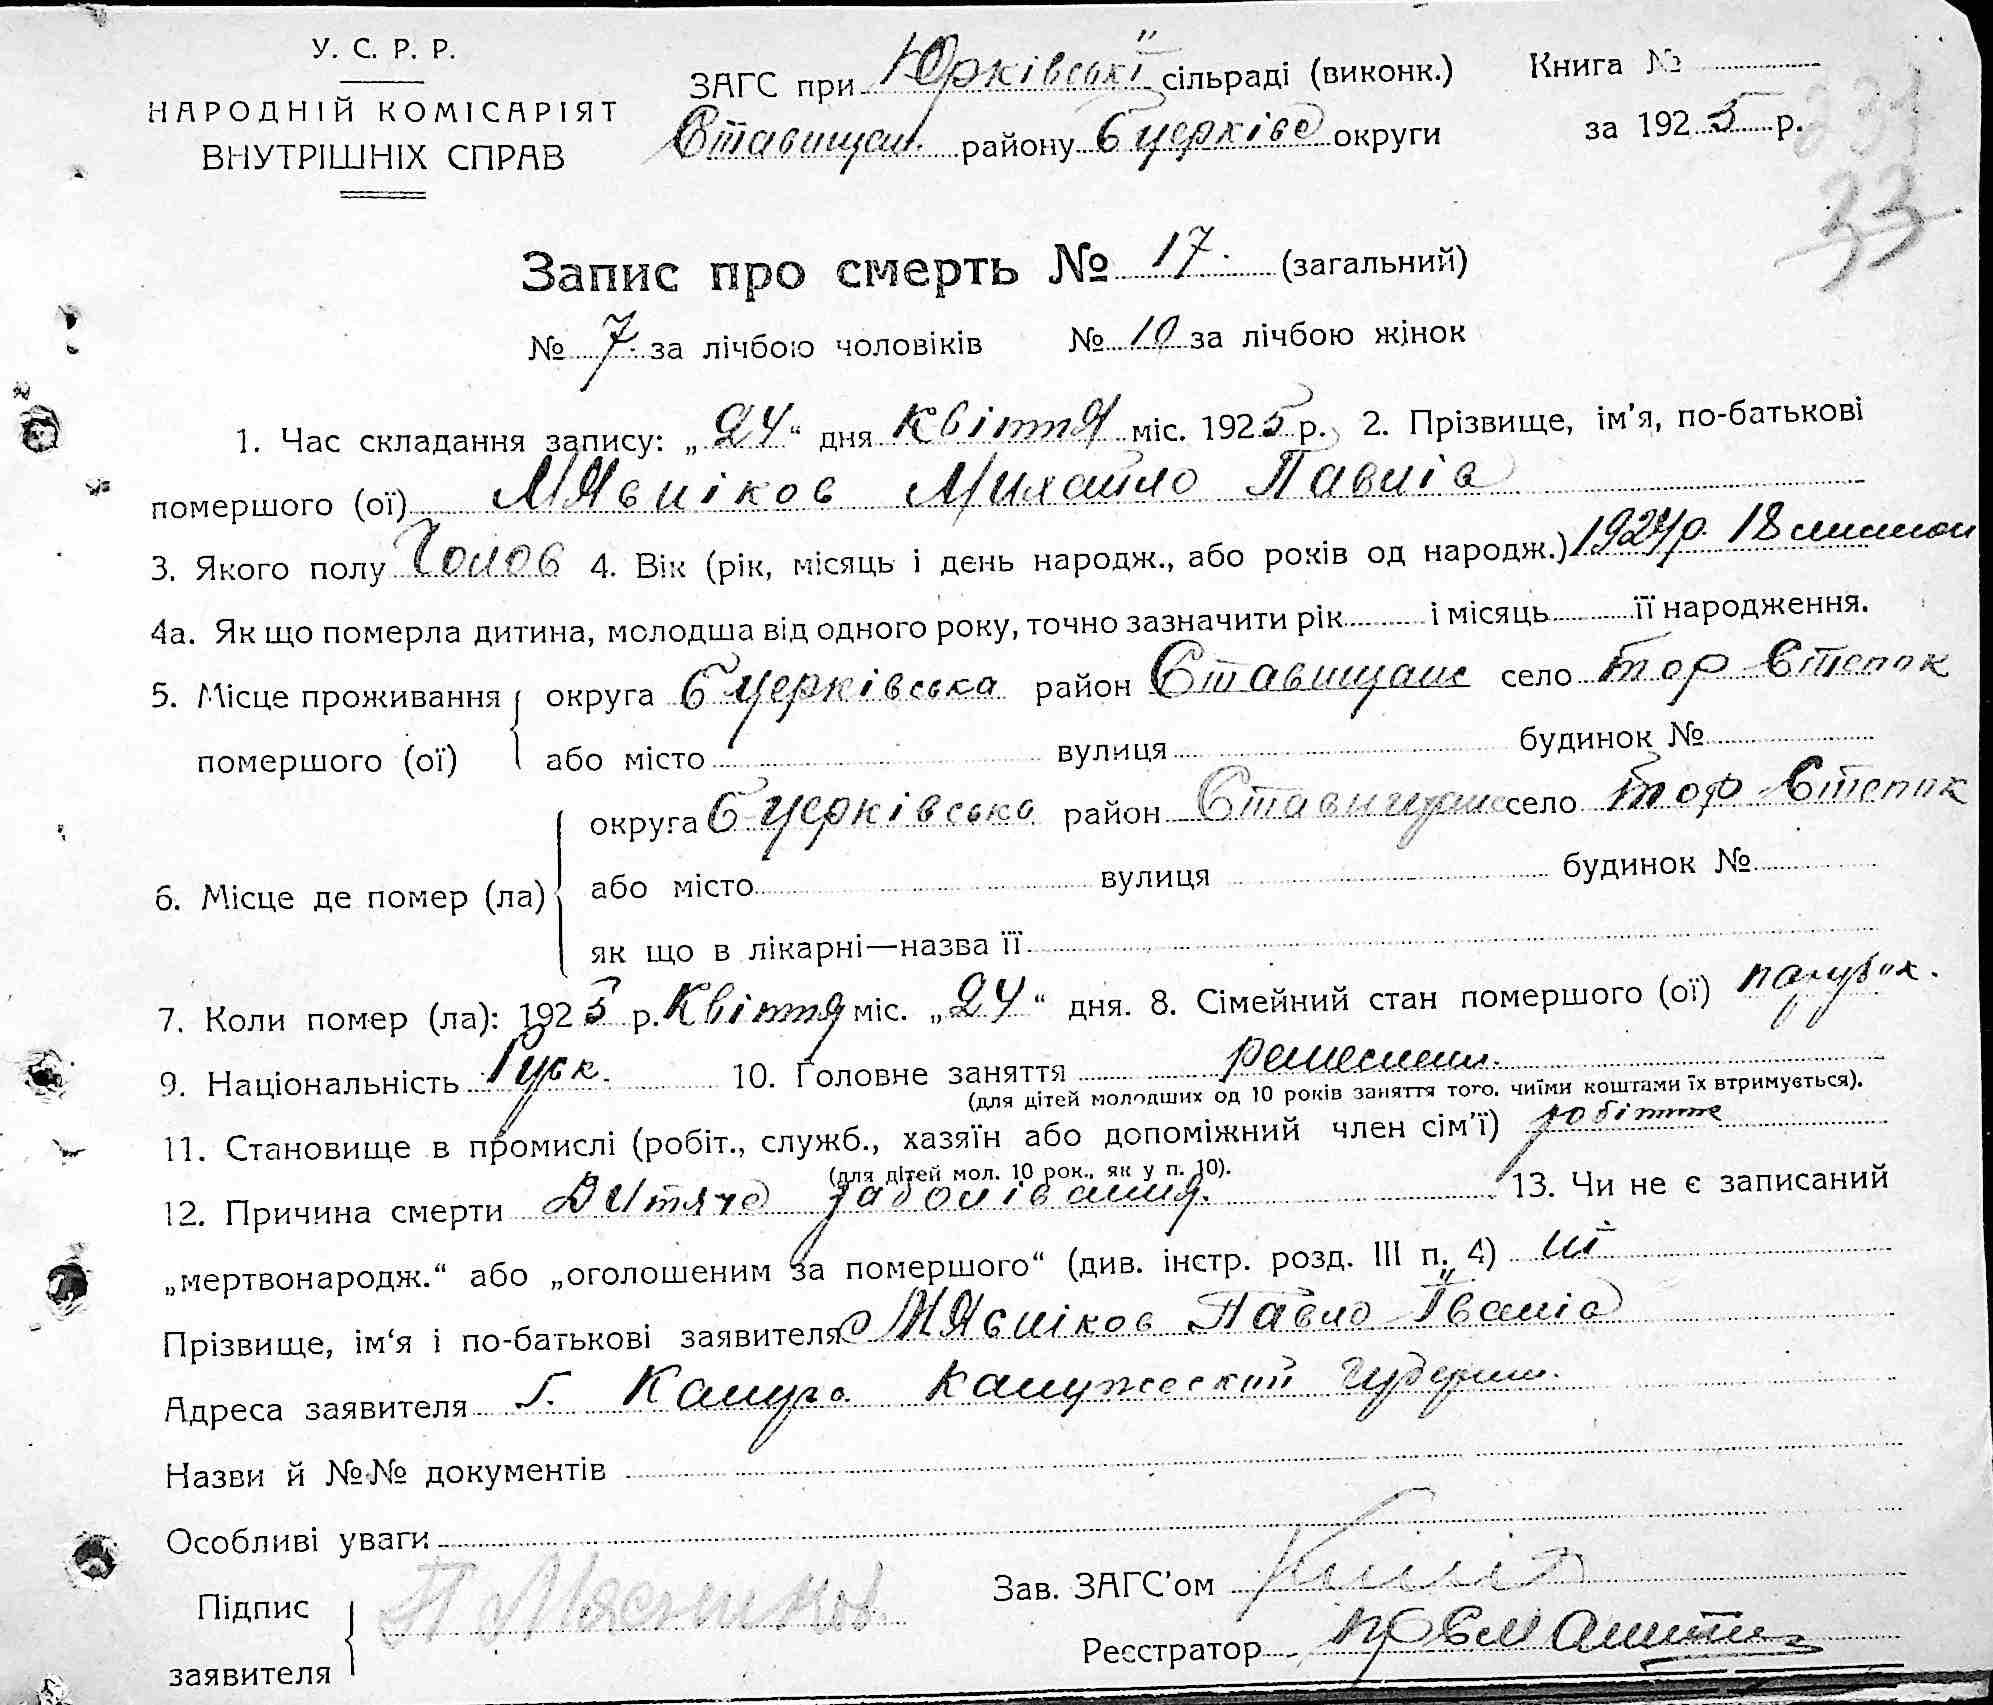 У. С. Р. Р.
НАРОДНІЙ КОМІСАРІЯТ
ВНУТРІШНІХ СПРАВ
ЗАГС при Юрківській сільраді (виконк.)
Ставищан. району Б Церківс округи
Книга №
за 1925 р.
33
Запис про смерть № 17. (загальний)
№ 7. за лічбою чоловіків № 10 за лічбою жінок
1. Час складання запису: „24“ дня Квіття міс. 1925 р. 2. Прізвище, ім’я, по-батькові
помершого (ої) Мясніков Михайло Павлів
3. Якого полу Чолов 4. Вік (рік, місяць і день народж., або років од народж.) 1924 р. 18
4а. Як що померла дитина, молодша від одного року, точно зазначити рік і місяць її народження.
5. Місце проживання округа Б Церківська район Ставищанс село Степок
помершого (ої) або місто вулиця будинок №
округа Б Церківська район Ставищанс село Степок
6. Місце де помер (ла) або місто вулиця будинок №
як що в лікарні—назва її
7. Коли помер (ла): 1925 р. Квіття міс. „24“ дня. 8. Сімейний стан помершого (ої) парубок.
9. Національність Руск. 10. Головне заняття
(для дітей молодших од 10 років заняття того, чиїми коштами їх втримується).
11. Становище в промислі (робіт., служб., хазяїн або допоміжний член сім’ї)
(для дітей мол. 10 рок., як у п. 10).
12. Причина смерти Дитяче заболівання. 13. Чи не є записаний
„мертвонародж.“ або „оголошеним за помершого“ (див. інстр. розд. III п. 4) ні
Прізвище, ім‘я і по-батькові заявителя Мясніков Павло Іванів
Адреса заявителя г. Калуга Калужеской губернии.
Назви й №№ документів
Особливі уваги
Підпис
заявителя П Мясников
Зав. ЗАГС’ом
Реєстратор